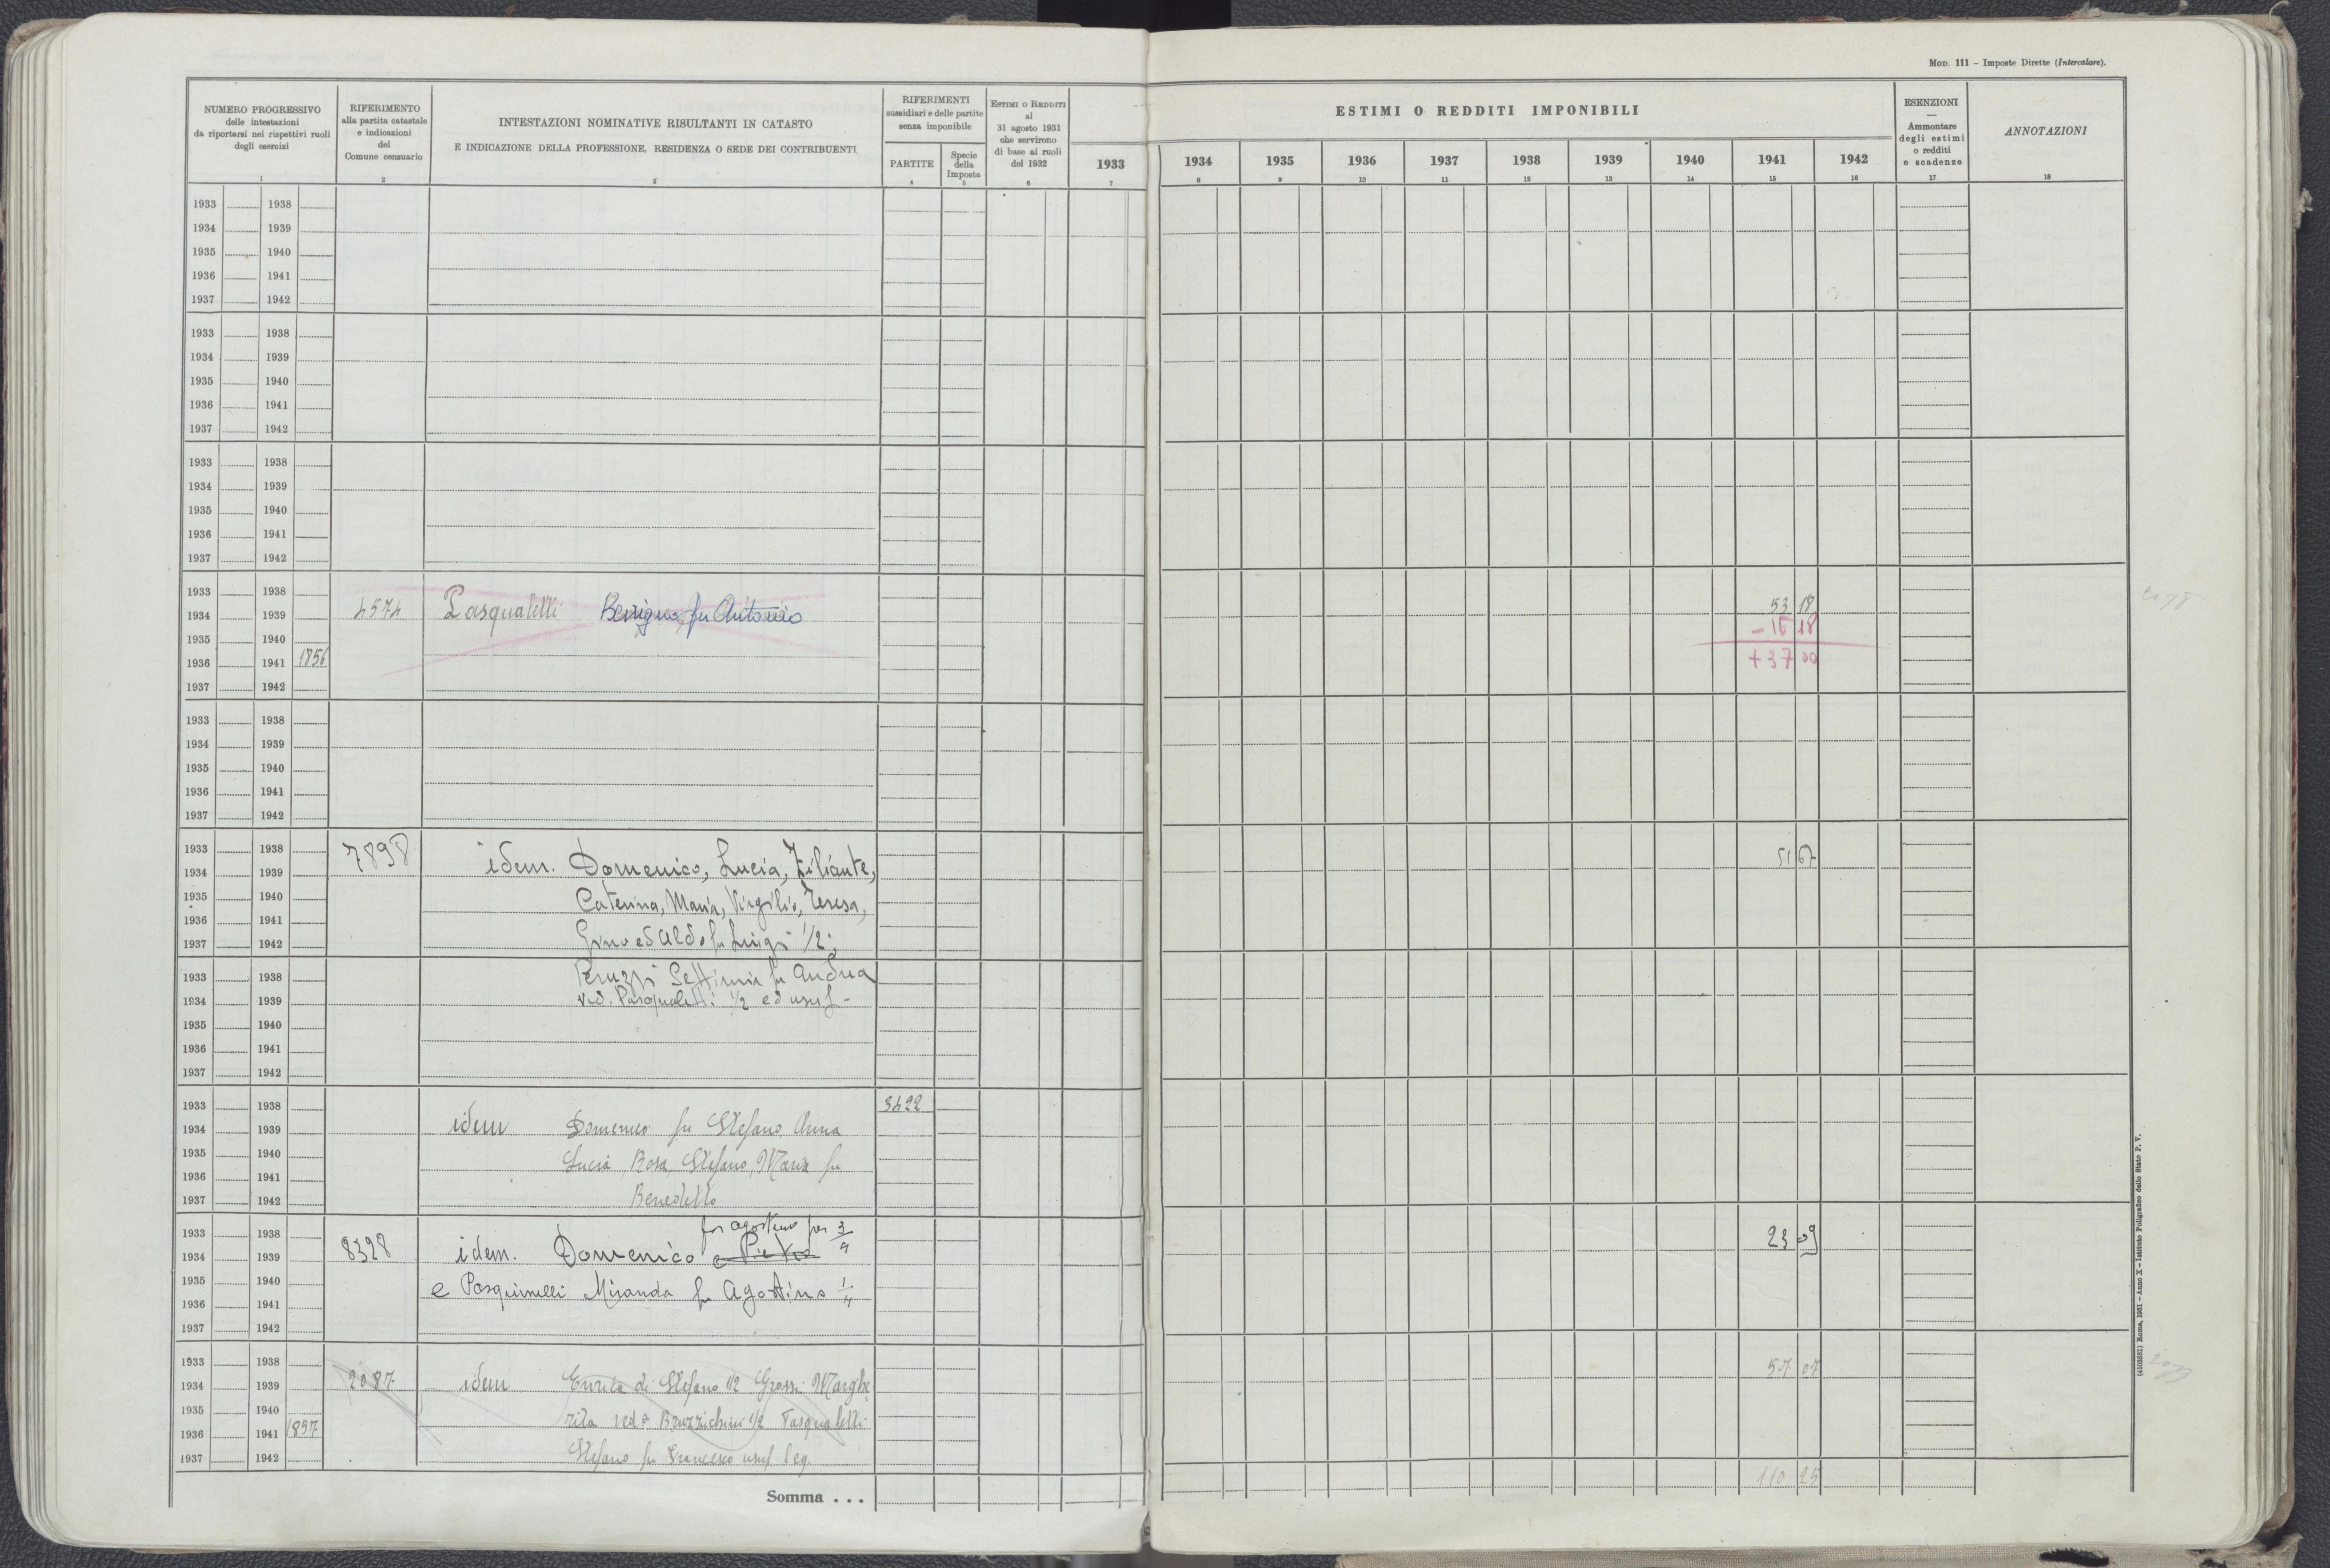 Mod. 111 – Imposte Dirette (Intercalare).
NUMERO PROGRESSIVO
delle intestazioni
da riportarsi nei rispettivi ruoli
degli esercizi
1
RIFERIMENTO
alla partita catastale
e indicazioni
del
Comune censuario
2
INTESTAZIONI NOMINATIVE RISULTANTI IN CATASTO
E INDICAZIONE DELLA PROFESSIONE, RESIDENZA O SEDE DEI CONTRIBUENTI
3
RIFERIMENTI
sussidiari e delle partite
senza imponibile
PARTITE
4
Specie
della
Imposta
5
Estimi o Redditi
al
31 agosto 1931
che servirono
di base ai ruoli
del 1932
6
1933
7
ESTIMI O REDDITI IMPONIBILI
1934 1935 1936 1937 1938 1939 1940 1941 1942
8 9 10 11 12 13 14 15 16
ESENZIONI
—
Ammontare
degli estimi
o redditi
e scadenze
17
ANNOTAZIONI
18
1933 1938
1934 1939
1935 1940
1936 1941
1937 1942
1933 1938
1934 1939
1935 1940
1936 1941
1937 1942
1933 1938
1934 1939
1935 1940
1936 1941
1937 1942
1933 1938 53 18
1934 1939 4574 Pasqualetti Benigno fu Antonio
1935 1940 – 16 18
1936 1941 1856 + 37 00
1937 1942
1933 1938
1934 1939
1935 1940
1936 1941
1937 1942
1933 1938 7898 51 67
1934 1939 idem. Domenico, Lucia, Ziliante,
1935 1940 Caterina, Maria, Virgilio, Teresa,
1936 1941
1937 1942 Gino ed Aldo fu Luigi 1/2;
1933 1938 Peruzzi Settimia fu Andrea
1934 1939 ved. Pasqualetti 1/2 ed usuf -
1935 1940
1936 1941
1937 1942
1933 1938 3422
1934 1939 idem Domenico fu Stefano, Anna
1935 1940 Lucia, Rosa, Stefano, Maria fu
1936 1941
1937 1942 Benedetto
1933 1938 fu Agostino per 3/4 23 09
1934 1939 8328 idem. Domenico e Pietro
1935 1940 e Pasquinelli Miranda fu Agostino 1/4
1936 1941
1937 1942
1933 1938 57 07
1934 1939 2087 idem Enrica di Stefano 1/2 Grossi Marghe
1935 1940 rita ved. Bruzzichini 1/2 Pasqualetti
1936 1941 1857
1937 1942 Stefano fu Francesco usuf leg.
Somma . . . 110 25
(4103521) Roma, 1931 – Anno X – Istituto Poligrafico dello Stato P. V.